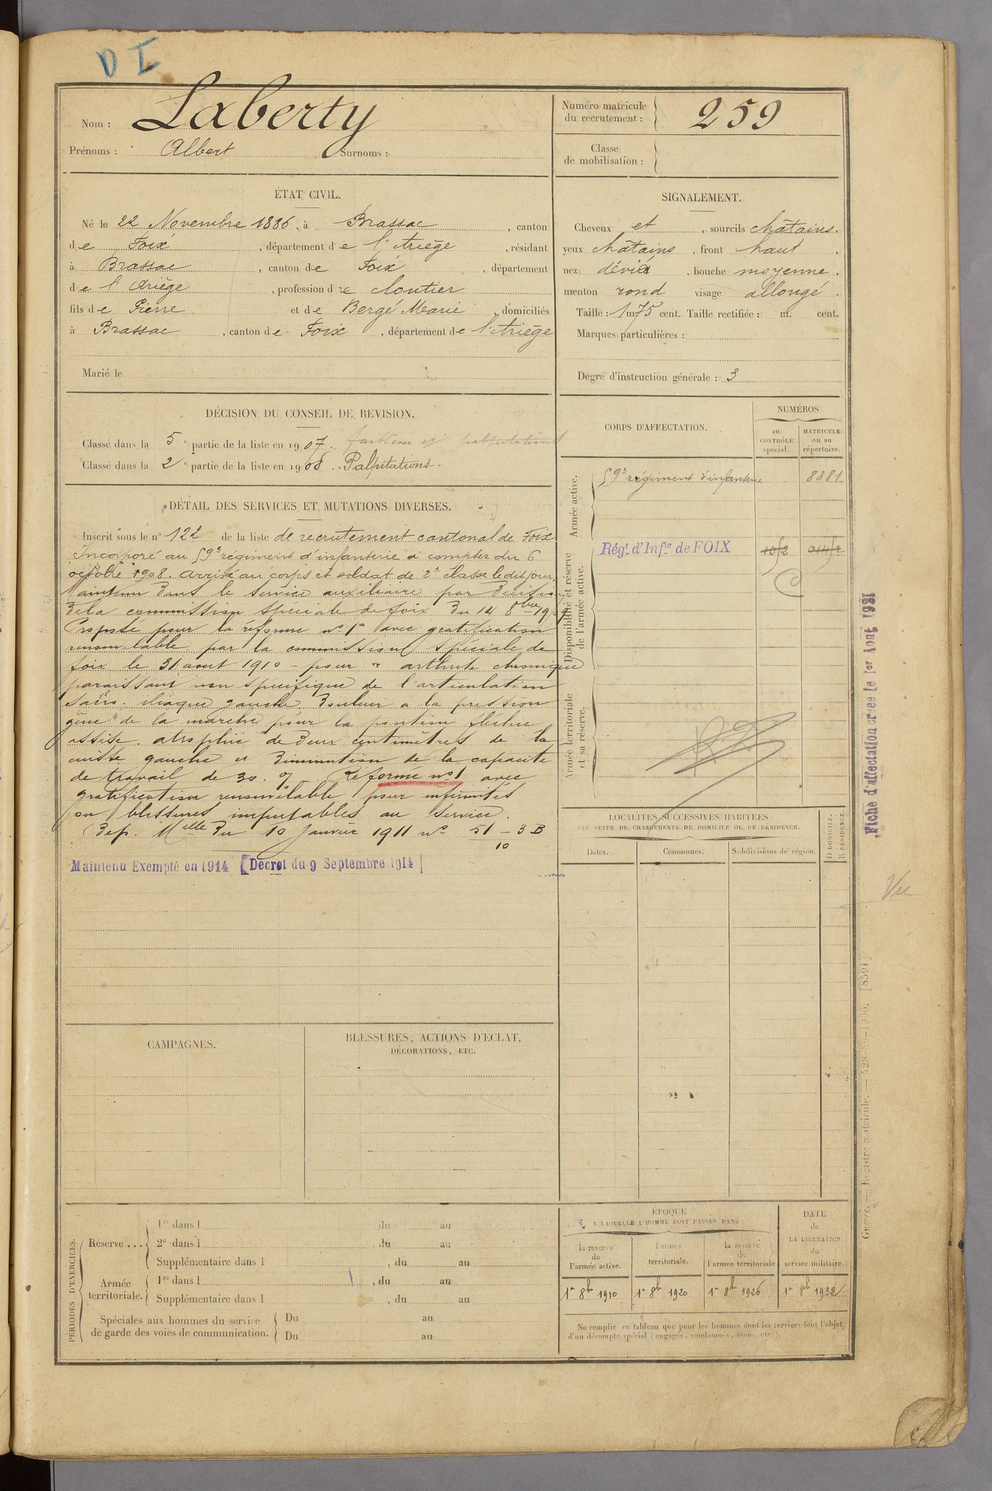 D I
Nom : Laberty
Prénoms : Albert Surnoms :
Numéro matricule du recrutement : 259
Classe de mobilisation :
ÉTAT CIVIL.
Né le 22 Novembre 1886, à Brassac, canton
de Foix, département de l'Ariège, résidant
à Brassac, canton de Foix, département
de l'Ariège, profession de cloutier
fils de Pierre et de Bergé Marie, domiciliés
à Brassac, canton de Foix, département de l'Ariège
Marié le
SIGNALEMENT.
Cheveux et, sourcils châtains.
yeux châtains, front haut
nez dévié, bouche moyenne.
menton rond visage allongé.
Taille : 1m75 cent. Taille rectifiée : m. cent.
Marques particulières :
Degré d'instruction générale : 3
DÉCISION DU CONSEIL DE REVISION.
Classé dans la 5e partie de la liste en 1907. faiblesse et palpitations
Classé dans la 2e partie de la liste en 1908. Palpitations.
DÉTAIL DES SERVICES ET MUTATIONS DIVERSES.
Inscrit sous le n° 122 de la liste de recrutement cantonal de Foix
Incorporé au 59e régiment d'infanterie à compter du 6
octobre 1908. arrivé au corps et soldat de 2e classe le dit jour.
Maintenu dans le service auxiliaire par décision
de la commission spéciale de foix du 14 8bre 1909
Proposé pour la réforme n° 1 avec gratification
renouvelable par la commission spéciale de
foix le 31 aout 1910 - pour " arthrite chronique
paraissant non spécifique de l'articulation
sacro-iliaque gauche douleur à la pression
gêne de la marche pour la position fléchie
assise. atrophie de deux centimètres de la
cuisse gauche et diminution de la capacité
de travail de 30 %. Réformé n° 1 avec
gratification renouvelable pour infirmités
ou blessures imputables au service.
Dép. Mlle du 10 Janvier 1911 n° 51 - 3 B
10
Maintenu Exempté en 1914 [Décret du 9 Septembre 1914]
CORPS D'AFFECTATION.
NUMÉROS
au CONTRÔLE spécial.
MATRICULE ou au répertoire.
Armée active.
59e régiment d'infanterie 8381
Disponibilité et réserve de l'armée active.
Régt d'Infie de FOIX
Armée territoriale et sa réserve.
LOCALITÉS SUCCESSIVES HABITÉES
PAR SUITE DE CHANGEMENTS DE DOMICILE OU DE RÉSIDENCE.
Dates. Communes. Subdivisions de région. D DOMICILE. R RÉSIDENCE.
Fiche d'affectation créée le 1er Aout 1931
Vu
CAMPAGNES.
BLESSURES, ACTIONS D'ÉCLAT,
DÉCORATIONS, ETC.
PÉRIODES D'EXERCICES.
Reserve ... 1re dans l du au
2e dans l du au
Supplémentaire dans l , du au
Armée territoriale. 1re dans l , du au
Supplémentaire dans l , du au
Spéciales aux hommes du service Du au
de garde des voies de communication. Du au
ÉPOQUE
À LAQUELLE L'HOMME DOIT PASSER DANS :
la réserve de l'armée active.
l'armée territoriale.
la réserve de l'armée territoriale
DATE de LA LIBÉRATION du service militaire.
1er 8bre 1910 1er 8bre 1920 1er 8bre 1926 1er 8bre 1932
Ne remplir ce tableau que pour les hommes dont les services font l'objet
d'un décompte spécial (engagés, condamnés, omis, etc.).